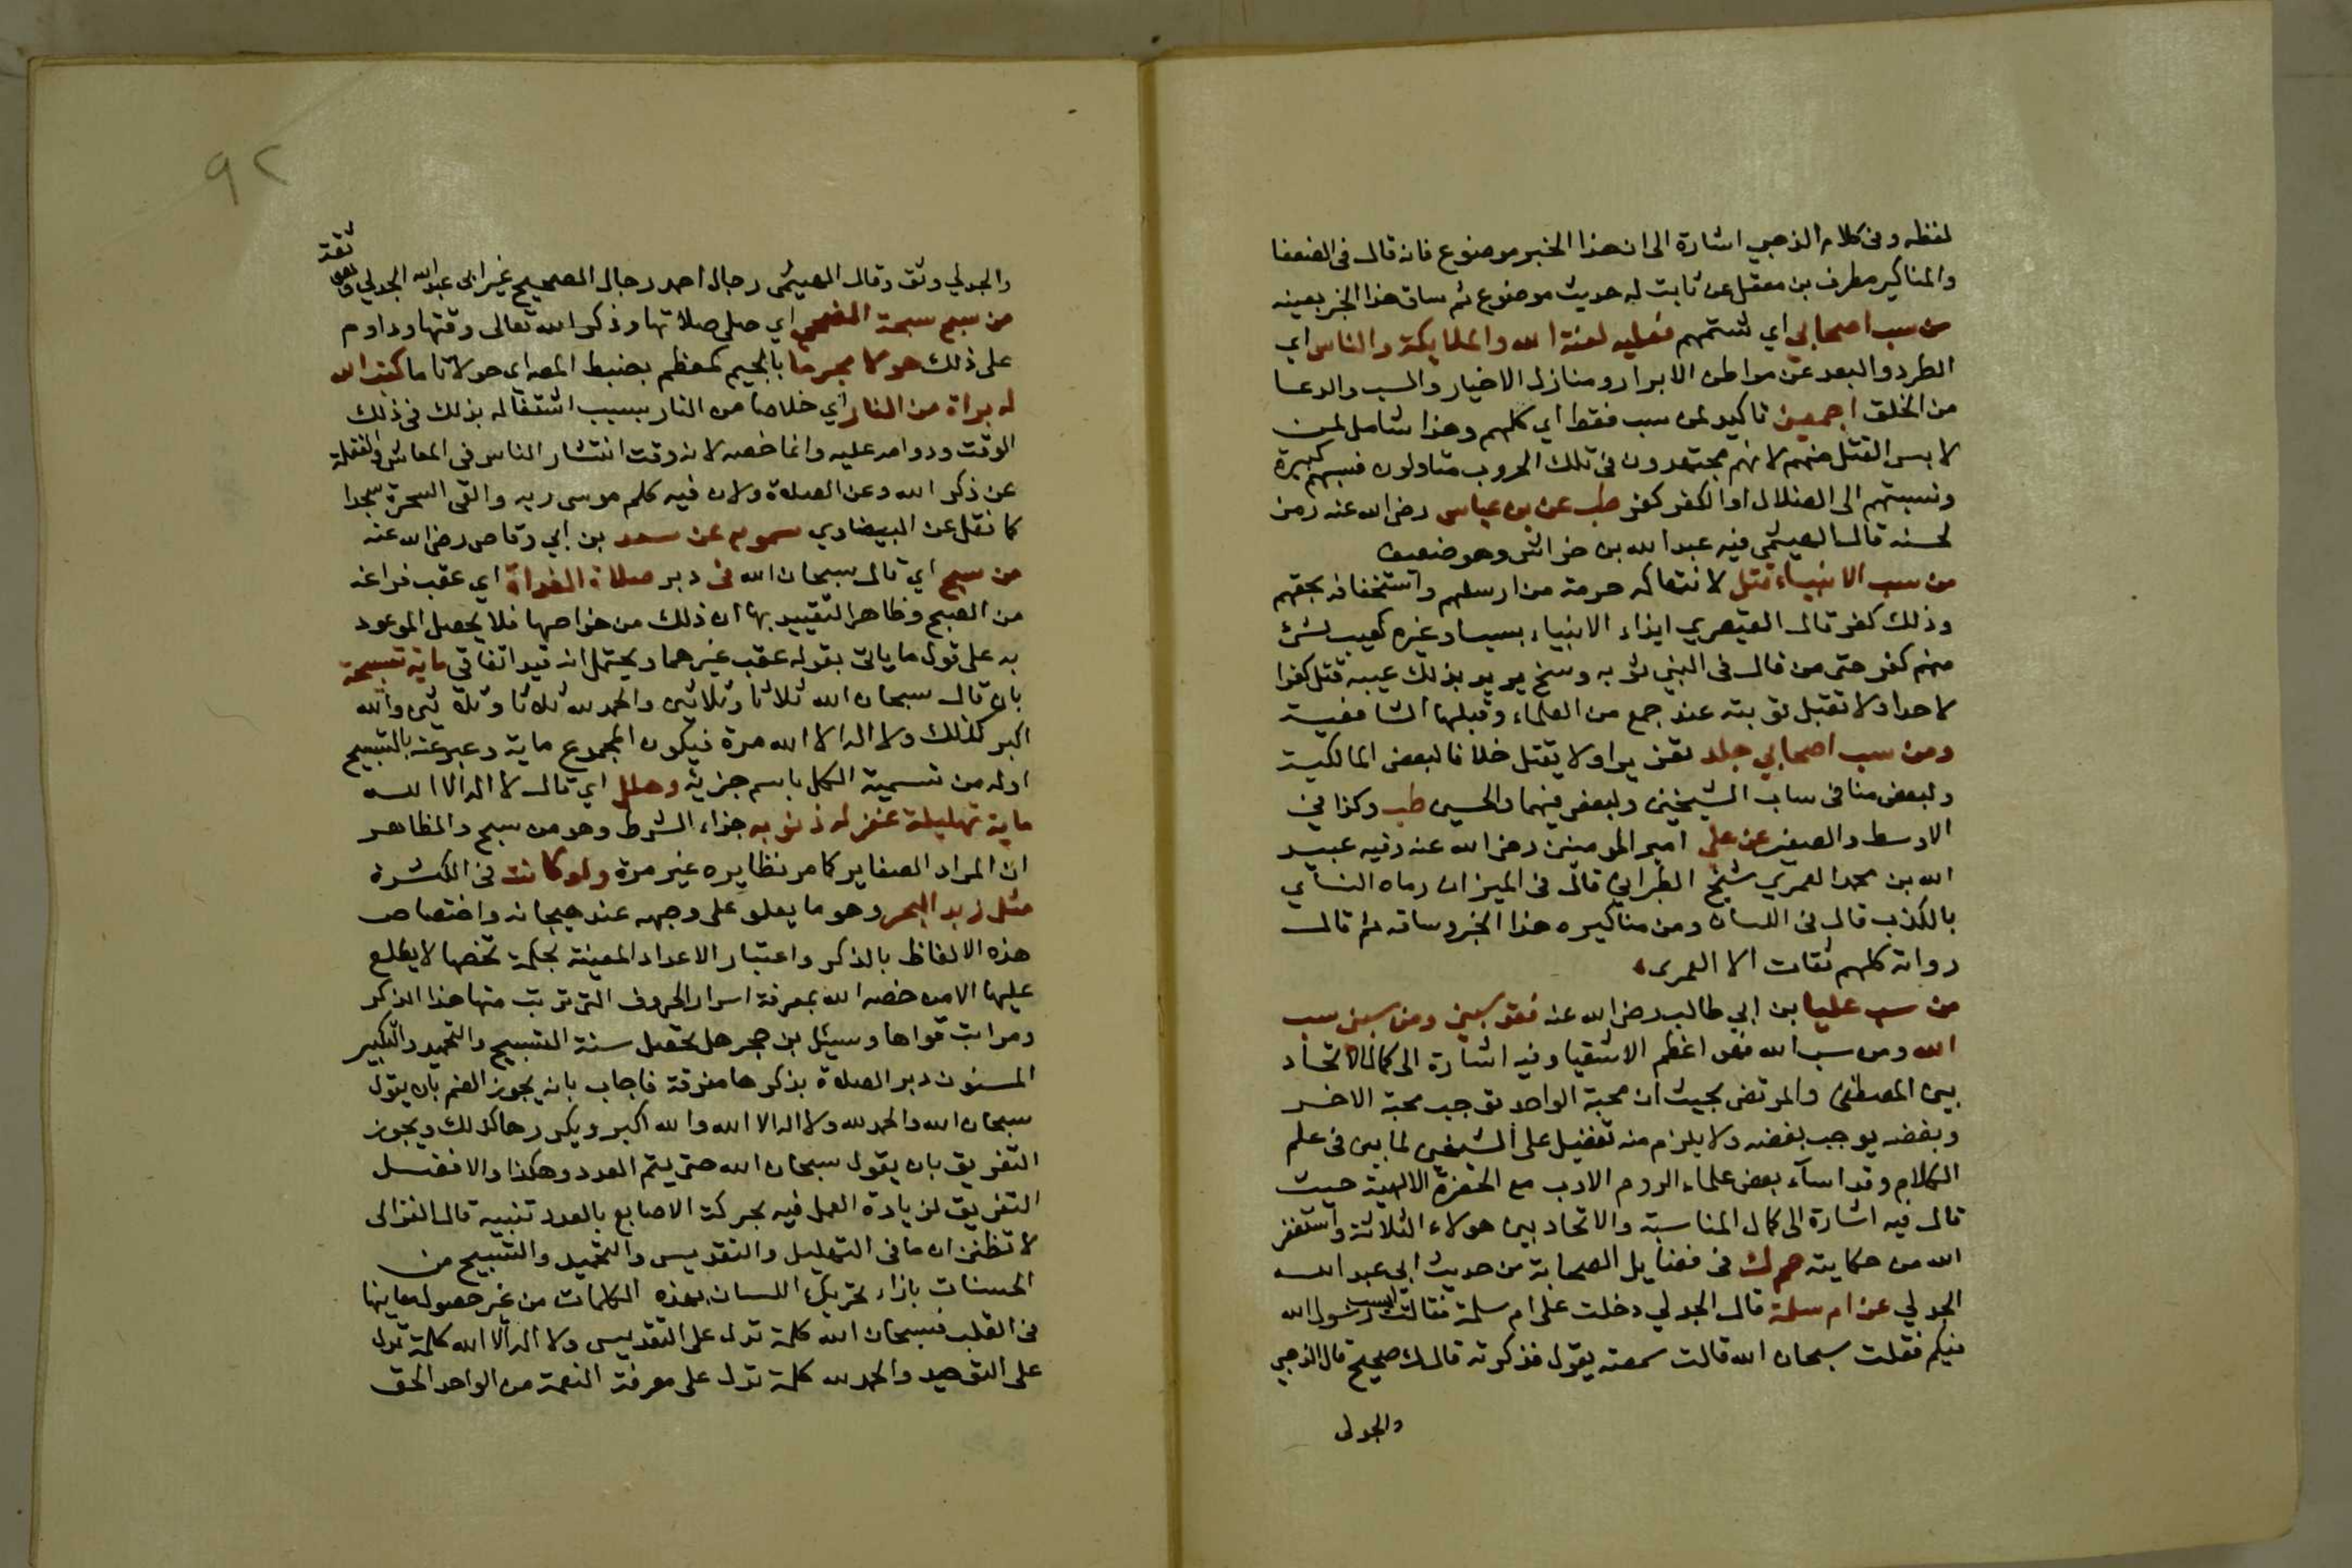 لفظه وفى كلام الذهبي اشارة الى ان هذا الخبر موضوع فانه قال فى الضعفا
والمناكير مطرف بن معقل عن ثابت له حديث موضوع ثم ساق هذا الخبر بعينه
من سب اصحابي اي شتمهم فعليه لعنة الله والملايكة والناس اي
الطرد والبعد عن مواطن الابرار ومنازل الاخيار والسب والدعا
من الخلق اجمعين تاكيد لمن سب فقط اي كلهم وهذا شامل لمن
لابس القتل منهم لانهم مجتهدون فى تلك الحروب متاولون فسبهم كبيرة
ونسبتهم الى الضلال او الكفر كفر طب عن بن عباس رضى الله عنه رمز
لحسنه قال الهيثمى فيه عبد الله بن خراش وهو ضعيف
من سب الانبياء قتل لانتهاكه حرمة من ارسلهم واستخفافه بحقهم
وذلك كفر قال القيصري ايذاء الانبياء بسب او غيره كعيب شئ
منهم كفر حتى من قال فى النبي ثوبه وسخ يريد بذلك عيبه قتل كفرا
لا حدا ولا تقبل توبته عند جمع من العلماء وقبلها الشافعية
ومن سب اصحابي جلد تعزيرا ولا يقتل خلافا لبعض المالكية
ولبعض منا فى ساب الشيخين ولبعض فيهما والحسين طب وكذا في
الاوسط والصغير عن علي امير المومنين رضى الله عنه وفيه عبيد
الله بن محمد العمري شيخ الطبراني قال فى الميزان رماه النسأي
بالكذب قال فى اللسان ومن مناكيره هذا الخبر وساقه ثم قال
رواته كلهم ثقات الا العمرى
من سب عليا بن ابي طالب رضى الله عنه فقد سبني ومن سبني سب
الله ومن سب الله فهو اعظم الاشقيا وفيه اشارة الى كمال الاتحاد
بين المصطفى والمرتضى بحيث ان محبة الواحد توجب محبة الاخر
وبغضه يوجب بغضه ولا يلزم منه تفضيل على الشيخين لما بين فى علم
الكلام وقد اسآء بعض علماء الروم الادب مع الحضرة الالهية حيث
قال فيه اشارة الى كمال المناسبة والاتحاد بين هولاء الثلاثة واستغفر
الله من حكايته حم ك فى فضايل الصحابة من حديث ابى عبد الله
الجدلي عن ام سلمة قال الجدلي دخلت على ام سلمة فقالت ايسب رسول الله
فيكم فقلت سبحان الله قالت سمعته يقول فذكرته قال ك صحيح قال الذهبي
والجدلى
٩٢
والجدلي وثق وقال الهيثمى رجال احمد رجال الصحيح غير ابى عبد الله الجدلي وهو ثقة
من سبح سبحة الضحى اي صلى صلاتها وذكر الله تعالى وقتها وداوم
على ذلك حولا مجرما بالجيم كمعظم بضبط المص اى حولا تاما كتب الله
له براة من النار اي خلاصا من النار بسبب اشتغاله بذلك فى ذلك
الوقت ودوامه عليه وانما خصه لانه وقت انتشار الناس فى المعاش والغفلة
عن ذكر الله وعن الصلاة ولان فيه كلم موسى ربه والقى السحرة سجدا
كما نقل عن البيضاوي سمويه عن سعد بن ابي وقاص رضى الله عنه
من سبح اي قال سبحان الله فى دبر صلاة الغداة اي عقب فراغه
من الصبح وظاهر التقييد بها ان ذلك من خواصها فلا يحصل الموعود
به على قول ما ياتى بقوله عقب غيرهما ويحتمل انه قيد اتفاقي ماية تسبيحة
بان قال سبحان الله ثلاثا وثلاثين والحمد لله ثلاثا وثلاثين والله
اكبر كذلك ولا اله الا الله مرة فيكون المجموع ماية وعبر عنه بالتسبيح
اوله من تسمية الكل باسم جزيه وهلل اي قال لا اله الا الله
ماية تهليلة غفر له ذنوبه جزاء الشرط وهو من سبح والظاهر
ان المراد الصغاير كما مر نظايره غير مرة ولو كانت فى الكثرة
مثل زبد البحر وهو ما يعلو على وجهه عند هيجانه واختصاص
هذه الالفاظ بالذكر واعتبار الاعداد المعينة بحكمة تخصها لا يطلع
عليها الا من خصه الله بمعرفة اسرار الحروف التى تركبت منها هذا الذكر
ومراتب قواها وسيئل بن حجر هل يحصل سنة التسبيح والتحميد والتكبير
المسنون دبر الصلاة بذكرها مفرقة فاجاب بانه يجوز الضم بان يقول
سبحان الله والحمد لله ولا اله الا الله والله اكبر ويكررها كذلك ويجوز
التفريق بان يقول سبحان الله حتى يتم العدد وهكذا والافضل
التفريق لزيادة العمل فيه بحركة الاصابع بالعدد تنبيه قال الغزالى
لا تظنن ان ما فى التهليل والتقديس والتحميد والتسبيح من
الحسنات بازاء تحريك اللسان بهذه الكلمات من غير حصول معاينها
فى القلب فسبحان الله كلمة تدل على التقديس ولا اله الا الله كلمة تدل
على التوحيد والحمد لله كلمة تدل على معرفة النعمة من الواحد الحق